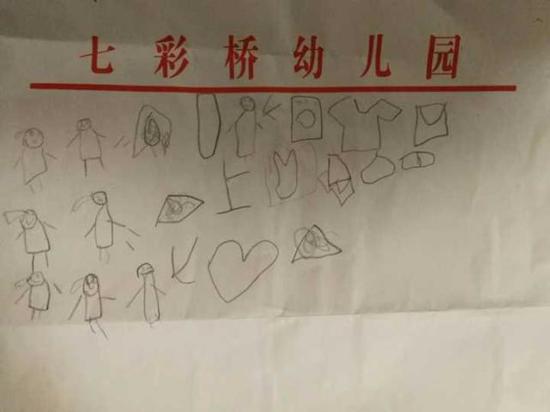 七彩桥幼儿园
上